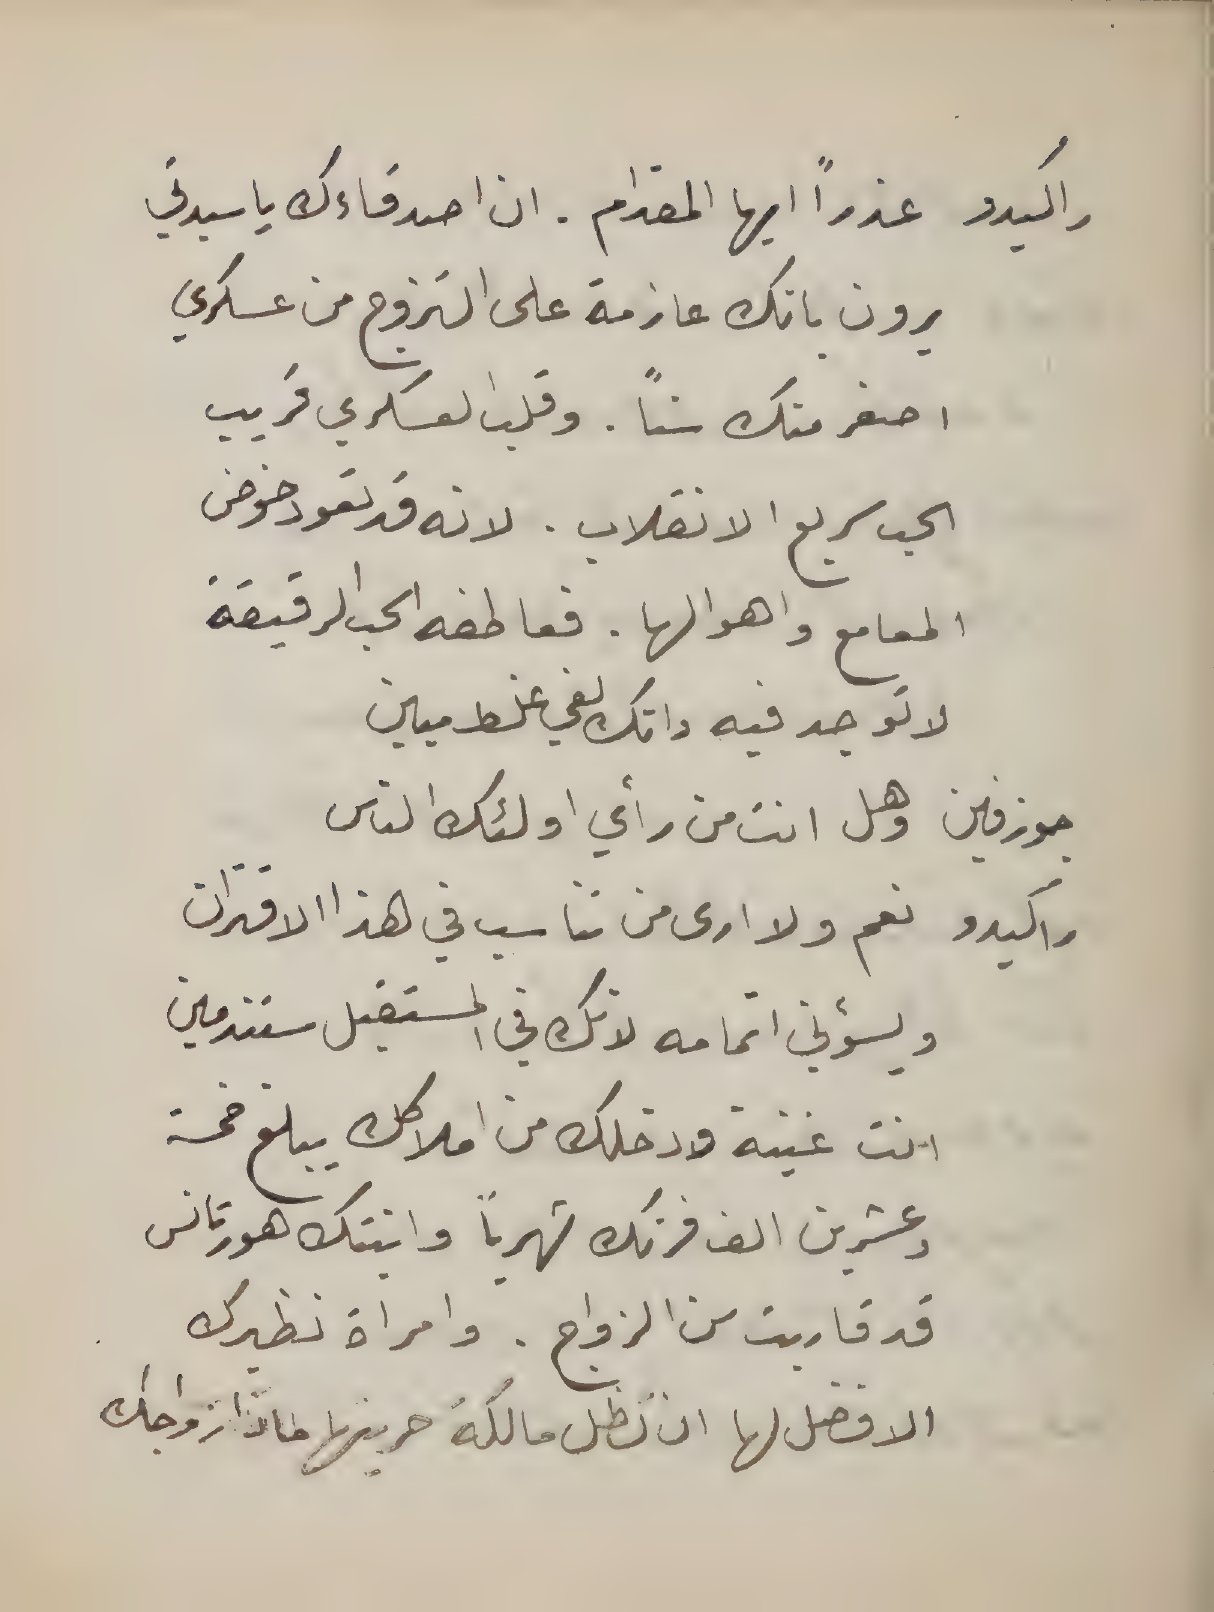 راكيدو عذراً ايها المقدام . ان اصدقاءك يا سيدتي
يرون بانك عازمة على التزوج من عسكري
اصغر منك سناً . وقلب العسكري قريب
الحب سريع الانقلاب . لانه قد تعود خوض
المعامع واهوالها . فعاطفه الحب الرقيقة
لا توجد فيه وانك لفي غلط مبين
جوزفين وهل انت من رأي اولئك الناس
راكيدو نعم ولا ارى من تناسب في هذا الاقتران
ويسؤني اتمامه لانك في المستقبل ستندمين
انت غنية ودخلك من املاكك يبلغ خمسة
وعشرين الف فرنك شهرياً وابنتك هورتانس
قد قاربت سن الزواج . وامراة نظيرك
الافضل لها ان تظل مالكة حريتها زواجك